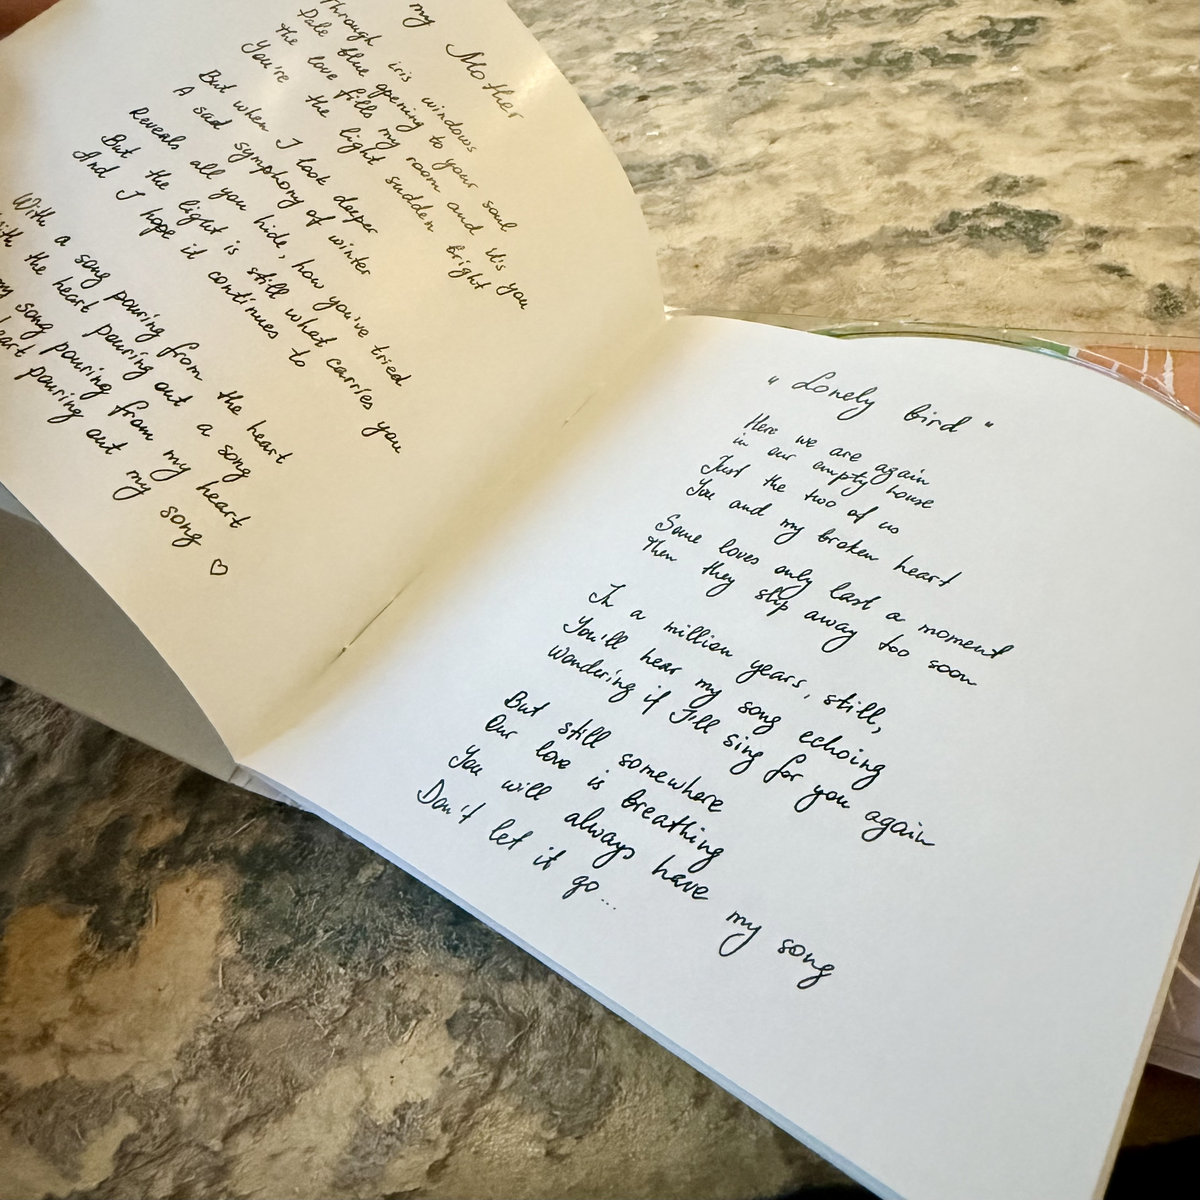 my Mother
Through iris windows
Pale blue opening to your soul
The love fills my room and it's you
You're the light sudden bright
But when I look deeper
A sad symphony of winter
Reveals all you hide, how you've tried
But the light is still what carries you
And I hope it continues to
With a song pouring from the heart
With the heart pouring out a song
my song pouring from my heart
heart pouring out my song ♡
"Lonely bird"
Here we are again
in our empty house
Just the two of us
You and my broken heart
Some loves only last a moment
Then they slip away too soon
In a million years, still,
You'll hear my song echoing
Wondering if I'll sing for you again
But still somewhere
Our love is breathing
You will always have my song
Don't let it go...